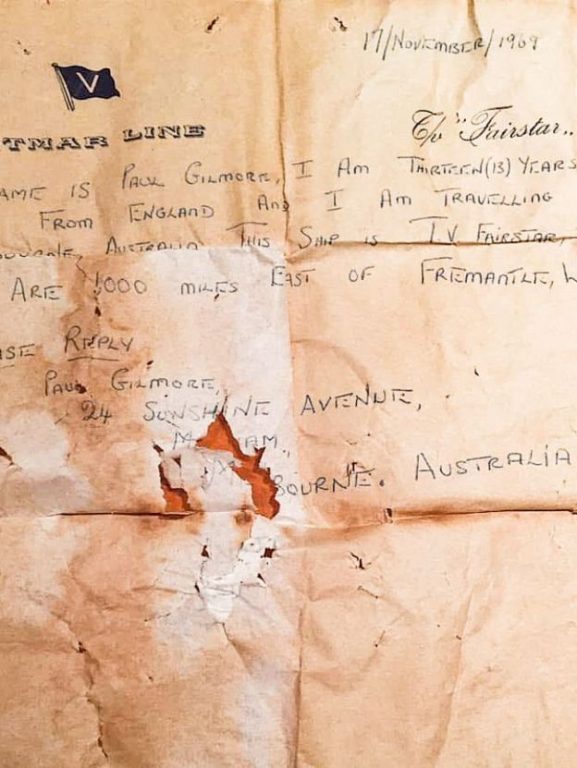 17/NOVEMBER/1969
V
TMAR LINE
T/v "Fairstar"
AME IS PAUL GILMORE, I AM THIRTEEN (13) YEARS
FROM ENGLAND AND I AM TRAVELLING
BOURNE, AUSTRALIA. THIS SHIP IS T.V FAIRSTAR,
ARE 1000 MILES EAST OF FREMANTLE, W
ASE REPLY
PAUL GILMORE,
24 SUNSHINE AVENUE,
AM,
BOURNE. AUSTRALIA